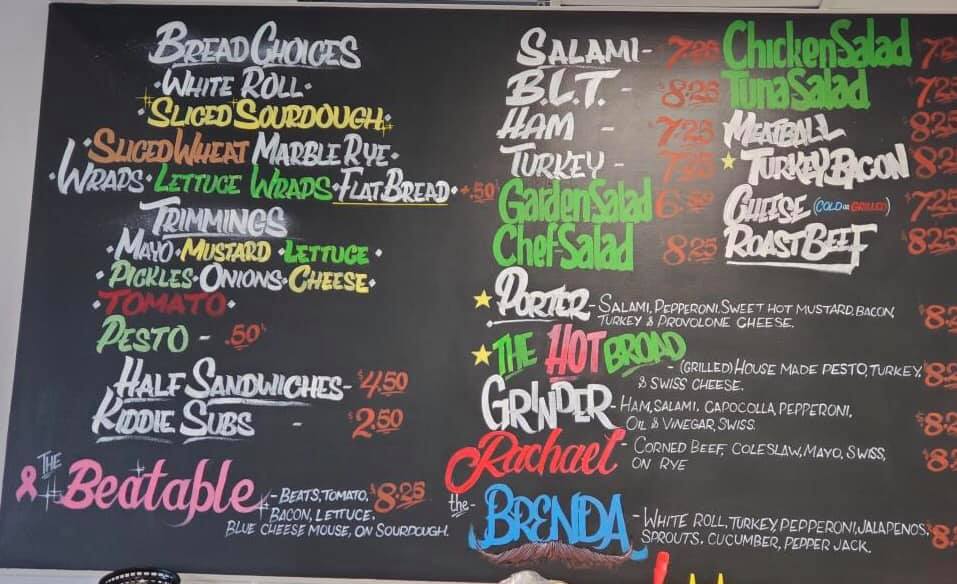 BREAD CHOICES
·WHITE ROLL·
·SLICED SOURDOUGH·
·SLICED WHEAT MARBLE RYE·
·WRAPS·LETTUCE WRAPS·FLAT BREAD· +.50
TRIMMINGS
·MAYO·MUSTARD·LETTUCE·
·PICKLES·ONIONS·CHEESE·
·TOMATO·
PESTO - .50
HALF SANDWICHES- $4.50
KIDDIE SUBS - $2.50
THE #Beatable - BEATS, TOMATO, $8.25
BACON, LETTUCE,
BLUE CHEESE MOUSE, ON SOURDOUGH.
SALAMI- 7.25
B.L.T. - 8.25
HAM - 7.25
TURKEY - 7.25
Garden Salad
Chef Salad 8.25
Chicken Salad
Tuna Salad
MEATBALL
TURKEY BACON
CHEESE (COLD OR GRILLED)
ROAST BEEF
PORTER - SALAMI, PEPPERONI, SWEET HOT MUSTARD, BACON,
TURKEY & PROVOLONE CHEESE.
THE HOT BROAD - (GRILLED) HOUSE MADE PESTO, TURKEY,
& SWISS CHEESE.
GRINDER - HAM, SALAMI, CAPOCOLLA, PEPPERONI,
OIL & VINEGAR, SWISS.
Rachael - CORNED BEEF, COLESLAW, MAYO, SWISS,
ON RYE
the- BRENDA - WHITE ROLL, TURKEY, PEPPERONI, JALAPENOS,
SPROUTS, CUCUMBER, PEPPER JACK.